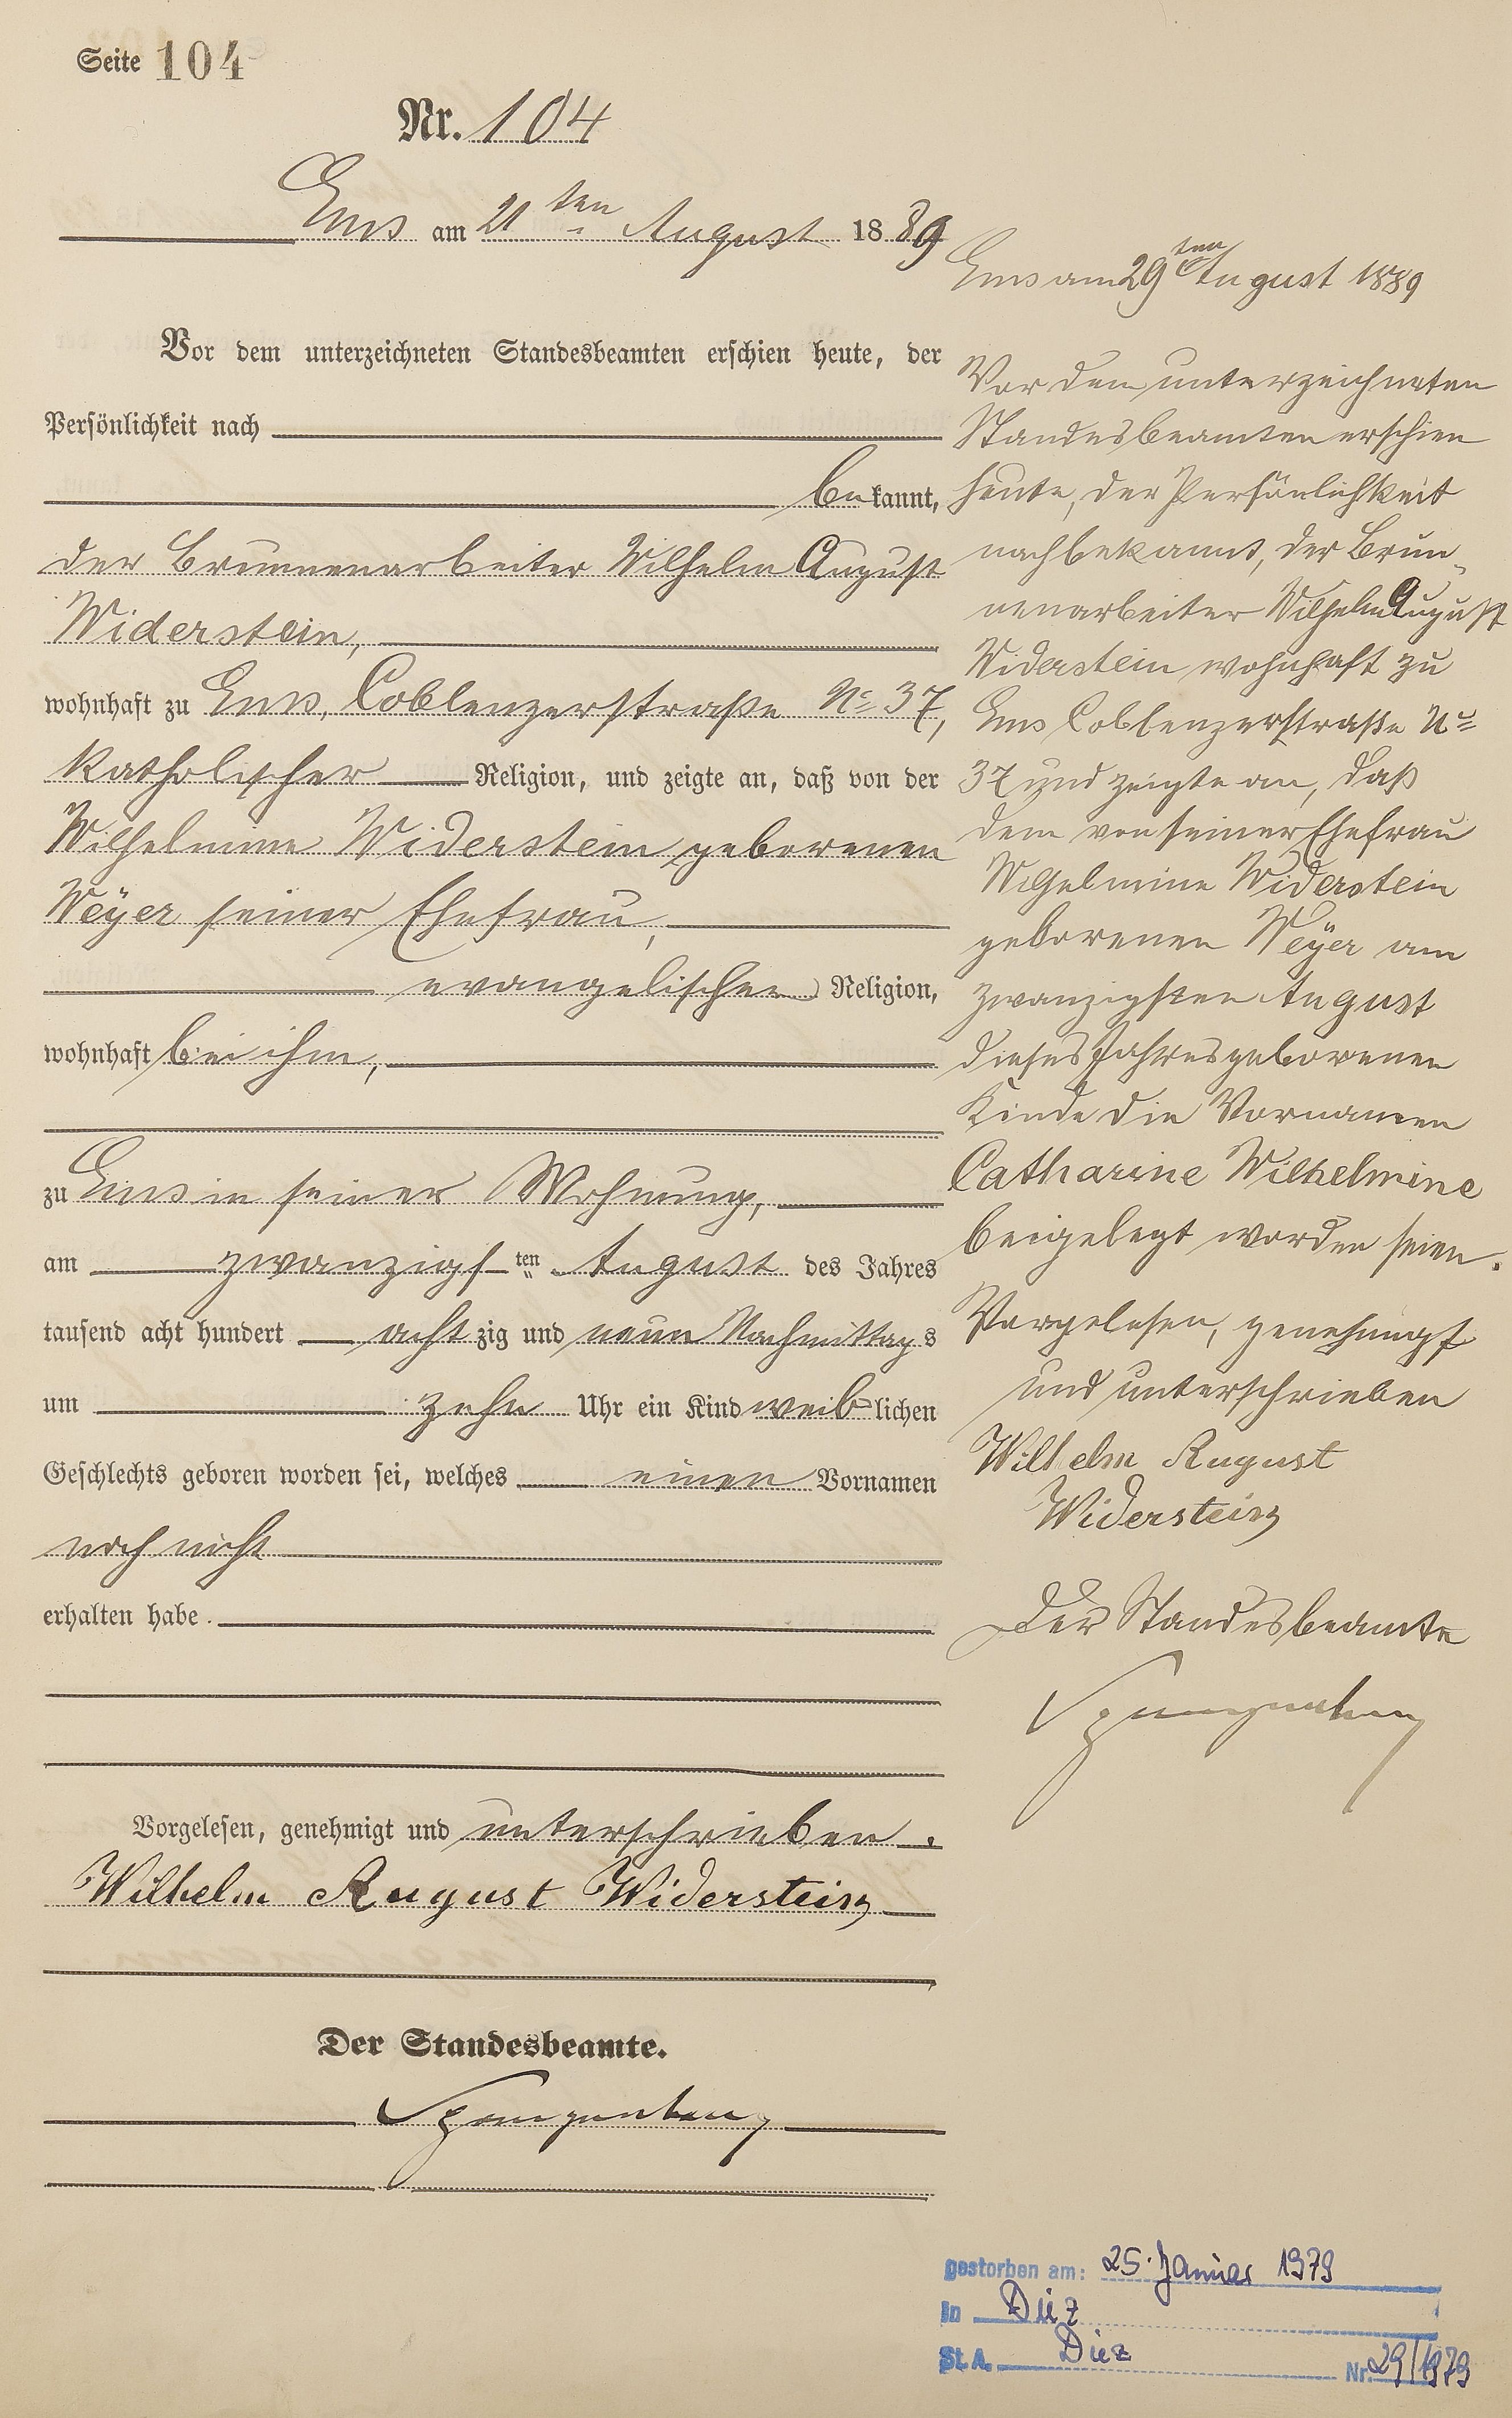 Seite 104
Nr. 104
Ems am 21ten August 1889
Vor dem unterzeichneten Standesbeamten erschien heute, der
Persönlichkeit nach
bekannt,
der Brunnenarbeiter Wilhelm August
Widerstein,
wohnhaft zu Ems, Coblenzerstraße No 37,
katholischer Religion, und zeigte an, daß von der
Wilhelmine Widerstein geborenen
Weÿer seiner Ehefrau,
evangelischer Religion,
wohnhaft bei ihm,
zu Ems in seiner Wohnung,
am zwanzigsten August des Jahres
tausend acht hundert achtzig und neun Nachmittags
um zehn Uhr ein Kind weiblichen
Geschlechts geboren worden sei, welches einen Vornamen
noch nicht
erhalten habe.
Vorgelesen, genehmigt und unterschrieben.
Wilhelm August Widerstein
Der Standesbeamte.
Spangenberg
Ems am 29ten August 1889
Vor dem unterzeichneten
Standesbeamten erschien
heute, der Persönlichkeit
nach bekannt, der Brun-
nenarbeiter Wilhelm August
Widerstein wohnhaft zu
Ems Coblenzerstraße No
37 und zeigte an, daß
dem von seiner Ehefrau
Wilhelmine Widerstein
geborenen Weÿer am
zwanzigsten August
dieses Jahres geborenen
Kinde die Vornamen
Catharine Wilhelmine
beigelegt worden seien.
Vorgelesen, genehmigt
und unterschrieben
Wilhelm August
Widerstein
Der Standesbeamte
Spangenberg
gestorben am: 25. Januar 1979
in Diez
St. A. Diez Nr. 29/1979